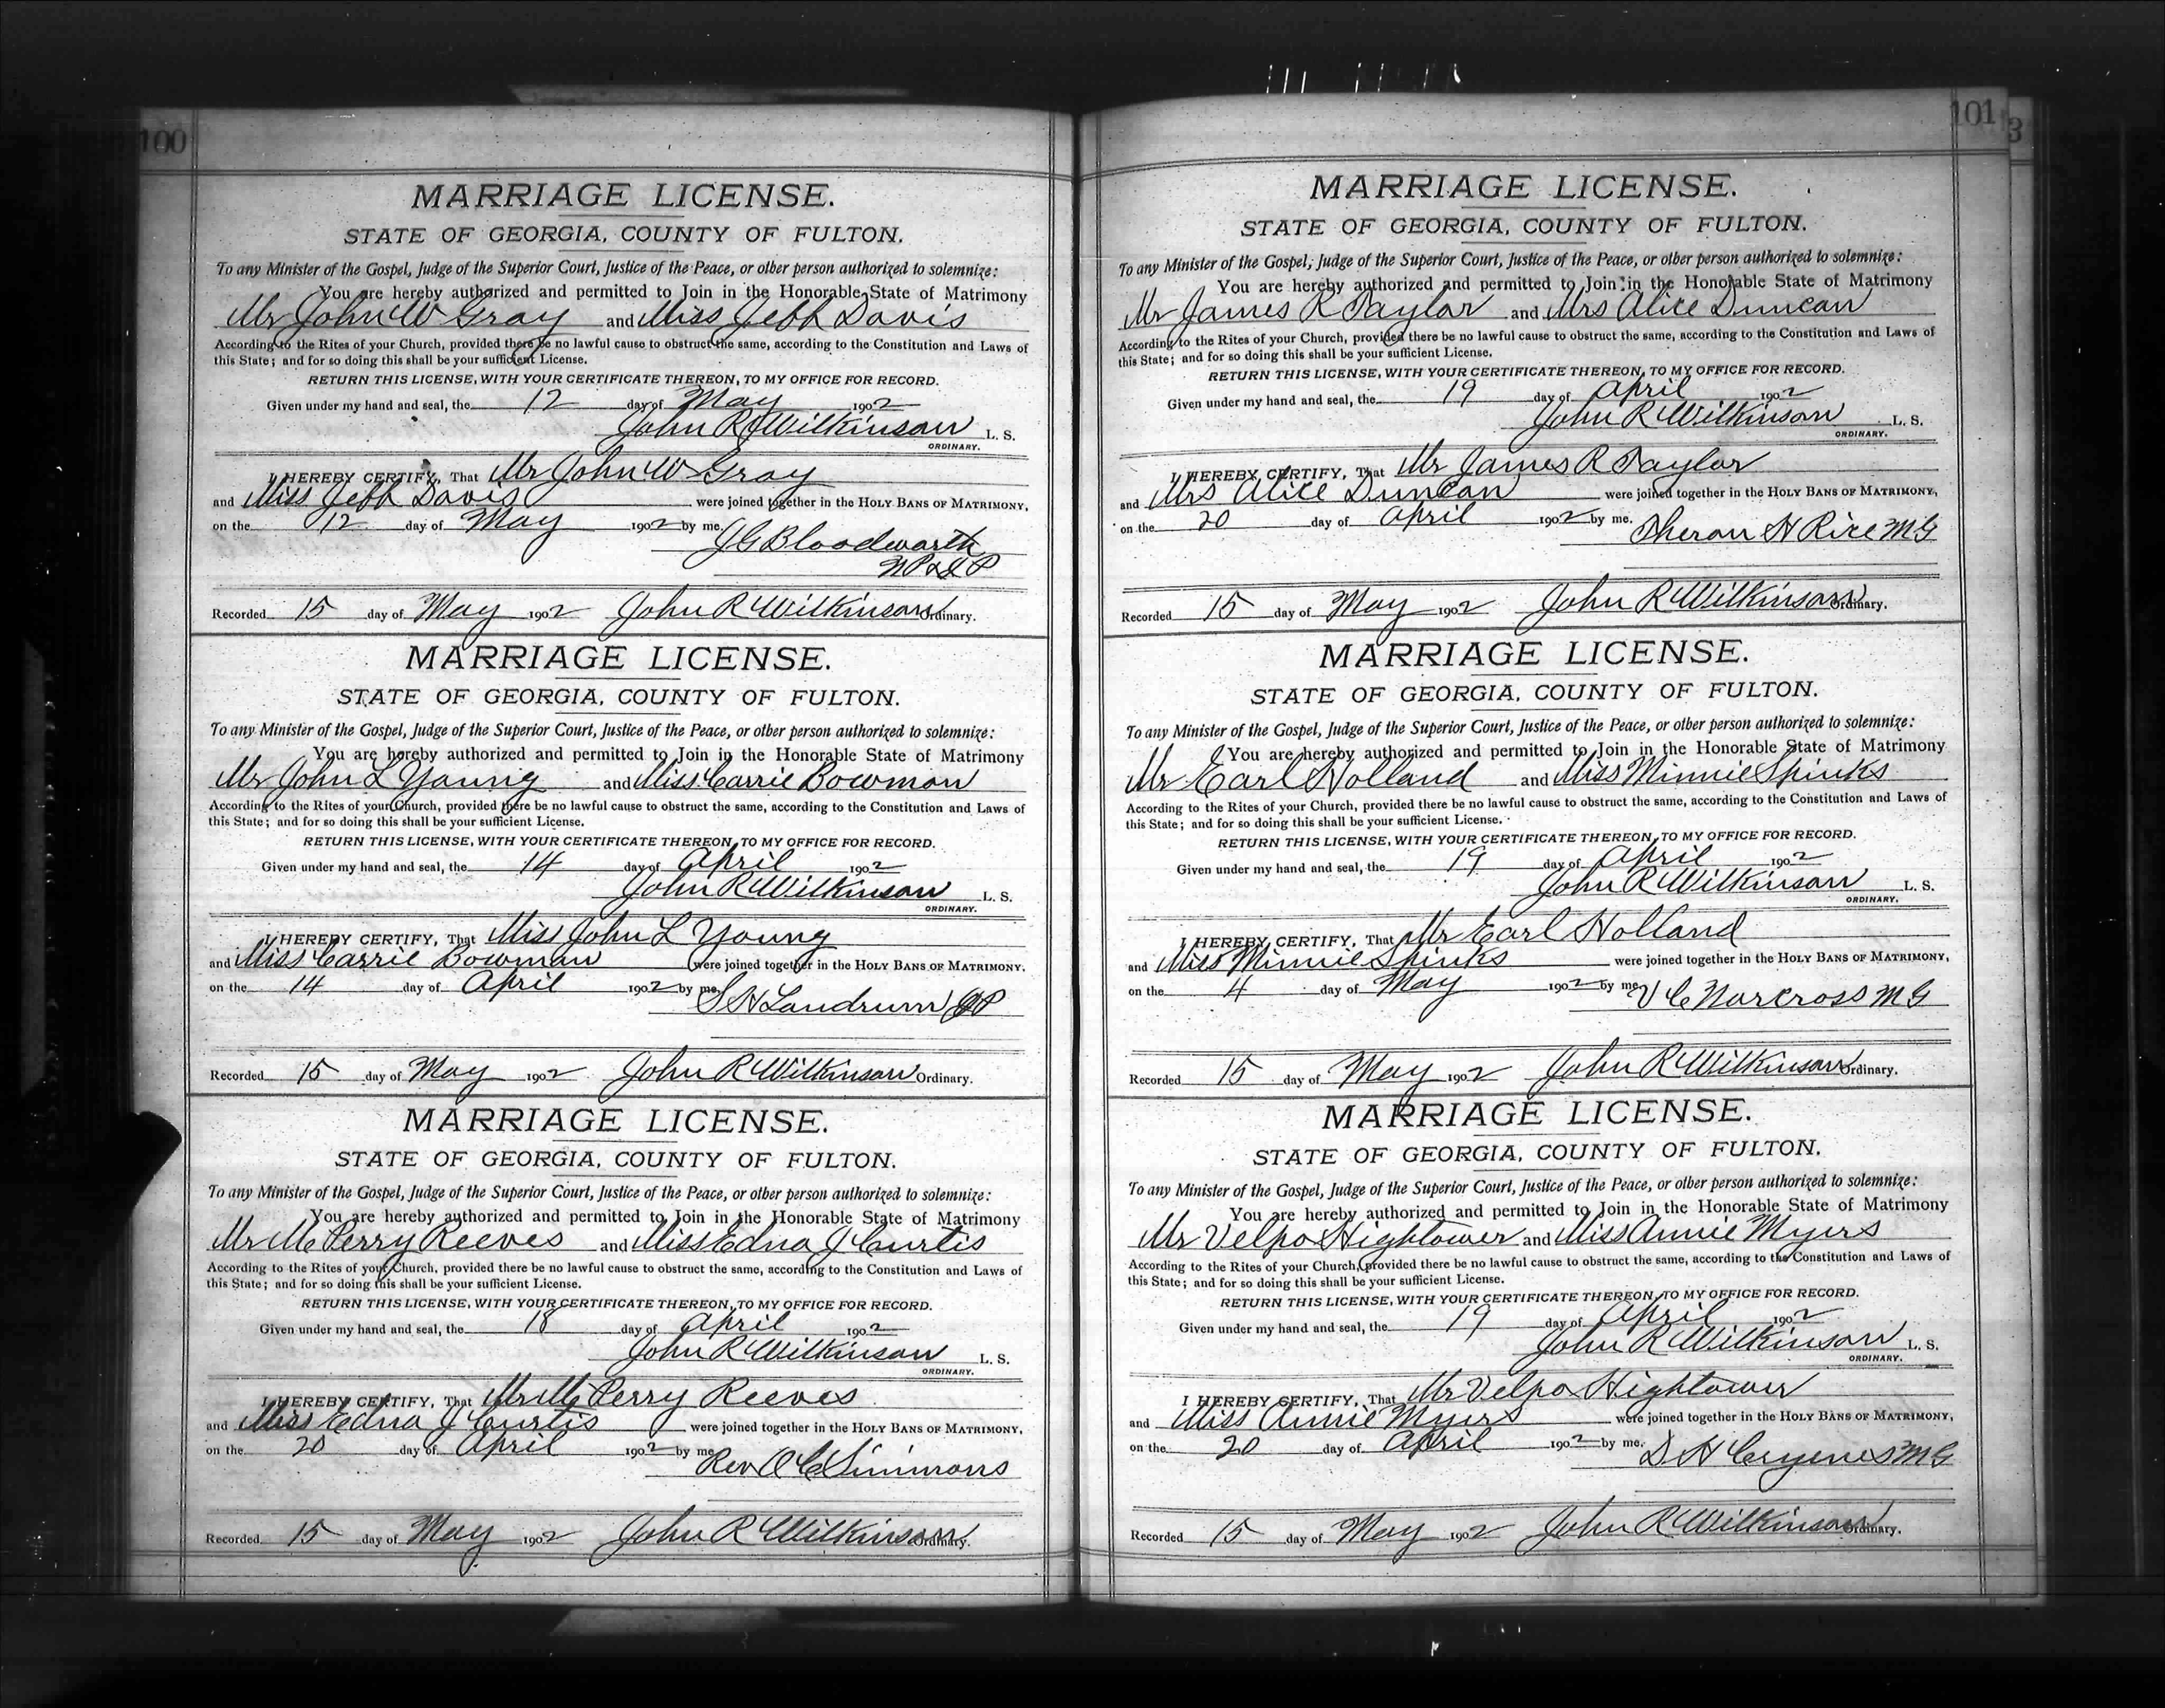 100
MARRIAGE LICENSE.
STATE OF GEORGIA, COUNTY OF FULTON.
To any Minister of the Gospel, Judge of the Superior Court, Justice of the Peace, or other person authorized to solemnize:
You are hereby authorized and permitted to Join in the Honorable State of Matrimony
Mr John W Gray and Miss Jeff Davis
According to the Rites of your Church, provided there be no lawful cause to obstruct the same, according to the Constitution and Laws of
this State; and for so doing this shall be your sufficient License.
RETURN THIS LICENSE, WITH YOUR CERTIFICATE THEREON, TO MY OFFICE FOR RECORD.
Given under my hand and seal, the 12 day of May 1902
John R Wilkinson L. S.
ORDINARY.
I HEREBY CERTIFY, That Mr John W Gray
and Miss Jeff Davis were joined together in the HOLY BANS OF MATRIMONY,
on the 12 day of May 1902 by me.
J G Bloodworth
N P & J P
Recorded 15 day of May 1902 John R Wilkinson Ordinary.
MARRIAGE LICENSE.
STATE OF GEORGIA, COUNTY OF FULTON.
To any Minister of the Gospel, Judge of the Superior Court, Justice of the Peace, or other person authorized to solemnize:
You are hereby authorized and permitted to Join in the Honorable State of Matrimony
Mr John L Young and Miss Carrie Bowman
According to the Rites of your Church, provided there be no lawful cause to obstruct the same, according to the Constitution and Laws of
this State; and for so doing this shall be your sufficient License.
RETURN THIS LICENSE, WITH YOUR CERTIFICATE THEREON, TO MY OFFICE FOR RECORD.
Given under my hand and seal, the 14 day of April 1902
John R Wilkinson L. S.
ORDINARY.
I HEREBY CERTIFY, That Miss John L Young
and Miss Carrie Bowman were joined together in the HOLY BANS OF MATRIMONY,
on the 14 day of April 1902 by me
S H Landrum J P
Recorded 15 day of May 1902 John R Wilkinson Ordinary.
MARRIAGE LICENSE.
STATE OF GEORGIA, COUNTY OF FULTON.
To any Minister of the Gospel, Judge of the Superior Court, Justice of the Peace, or other person authorized to solemnize:
You are hereby authorized and permitted to Join in the Honorable State of Matrimony
Mr Mc Perry Reeves and Miss Edna J Curtis
According to the Rites of your Church, provided there be no lawful cause to obstruct the same, according to the Constitution and Laws of
this State; and for so doing this shall be your sufficient License.
RETURN THIS LICENSE, WITH YOUR CERTIFICATE THEREON, TO MY OFFICE FOR RECORD.
Given under my hand and seal, the 18 day of April 1902
John R Wilkinson L. S.
ORDINARY.
I HEREBY CERTIFY, That Mr Mc Perry Reeves
and Miss Edna J Curtis were joined together in the HOLY BANS OF MATRIMONY,
on the 20 day of April 1902 by me
Rev O C Simmons
Recorded 15 day of May 1902 John R Wilkinson Ordinary.
101
3
MARRIAGE LICENSE.
STATE OF GEORGIA, COUNTY OF FULTON.
To any Minister of the Gospel, Judge of the Superior Court, Justice of the Peace, or other person authorized to solemnize:
You are hereby authorized and permitted to Join in the Honorable State of Matrimony
Mr James R Taylor and Mrs Alice Duncan
According to the Rites of your Church, provided there be no lawful cause to obstruct the same, according to the Constitution and Laws of
this State; and for so doing this shall be your sufficient License.
RETURN THIS LICENSE, WITH YOUR CERTIFICATE THEREON, TO MY OFFICE FOR RECORD.
Given under my hand and seal, the 19 day of April 1902
John R Wilkinson L. S.
ORDINARY.
I HEREBY CERTIFY, That Mr James R Taylor
and Mrs Alice Duncan were joined together in the HOLY BANS OF MATRIMONY,
on the 20 day of April 1902 by me.
Theron H Rice M G
Recorded 15 day of May 1902 John R Wilkinson Ordinary.
MARRIAGE LICENSE.
STATE OF GEORGIA, COUNTY OF FULTON.
To any Minister of the Gospel, Judge of the Superior Court, Justice of the Peace, or other person authorized to solemnize:
You are hereby authorized and permitted to Join in the Honorable State of Matrimony
Mr Earl Holland and Miss Minnie Spinks
According to the Rites of your Church, provided there be no lawful cause to obstruct the same, according to the Constitution and Laws of
this State; and for so doing this shall be your sufficient License.
RETURN THIS LICENSE, WITH YOUR CERTIFICATE THEREON, TO MY OFFICE FOR RECORD.
Given under my hand and seal, the 19 day of April 1902
John R Wilkinson L. S.
ORDINARY.
I HEREBY CERTIFY, That Mr Earl Holland
and Miss Minnie Spinks were joined together in the HOLY BANS OF MATRIMONY,
on the 4 day of May 1902 by me
V C Norcross M G
Recorded 15 day of May 1902 John R Wilkinson Ordinary.
MARRIAGE LICENSE.
STATE OF GEORGIA, COUNTY OF FULTON.
To any Minister of the Gospel, Judge of the Superior Court, Justice of the Peace, or other person authorized to solemnize:
You are hereby authorized and permitted to Join in the Honorable State of Matrimony
Mr Velpo Hightower and Miss Annie Myers
According to the Rites of your Church, provided there be no lawful cause to obstruct the same, according to the Constitution and Laws of
this State; and for so doing this shall be your sufficient License.
RETURN THIS LICENSE, WITH YOUR CERTIFICATE THEREON, TO MY OFFICE FOR RECORD.
Given under my hand and seal, the 19 day of April 1902
John R Wilkinson L. S.
ORDINARY.
I HEREBY CERTIFY, That Mr Velpo Hightower
and Miss Annie Myers were joined together in the HOLY BANS OF MATRIMONY,
on the 20 day of April 1902 by me.
S H M G
Recorded 15 day of May 1902 John R Wilkinson Ordinary.